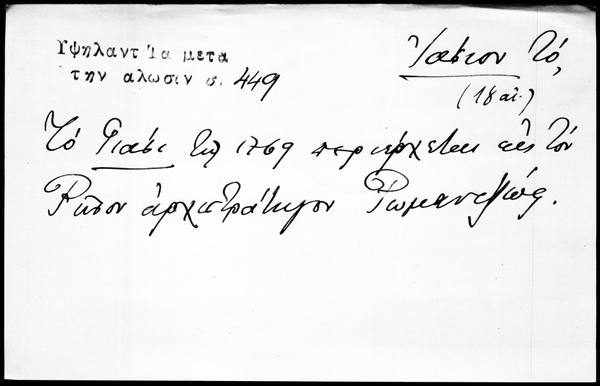 Υψηλαντ Τα μετα
την αλωσιν σ. 449
Ἰάσιον τό,
(18 αἰ.)
Τὸ Γιάσι τῷ 1769 περιέρχεται εἰς τὸν
Ῥῶσον ἀρχιστράτηγον Ῥωμαντζώφ.